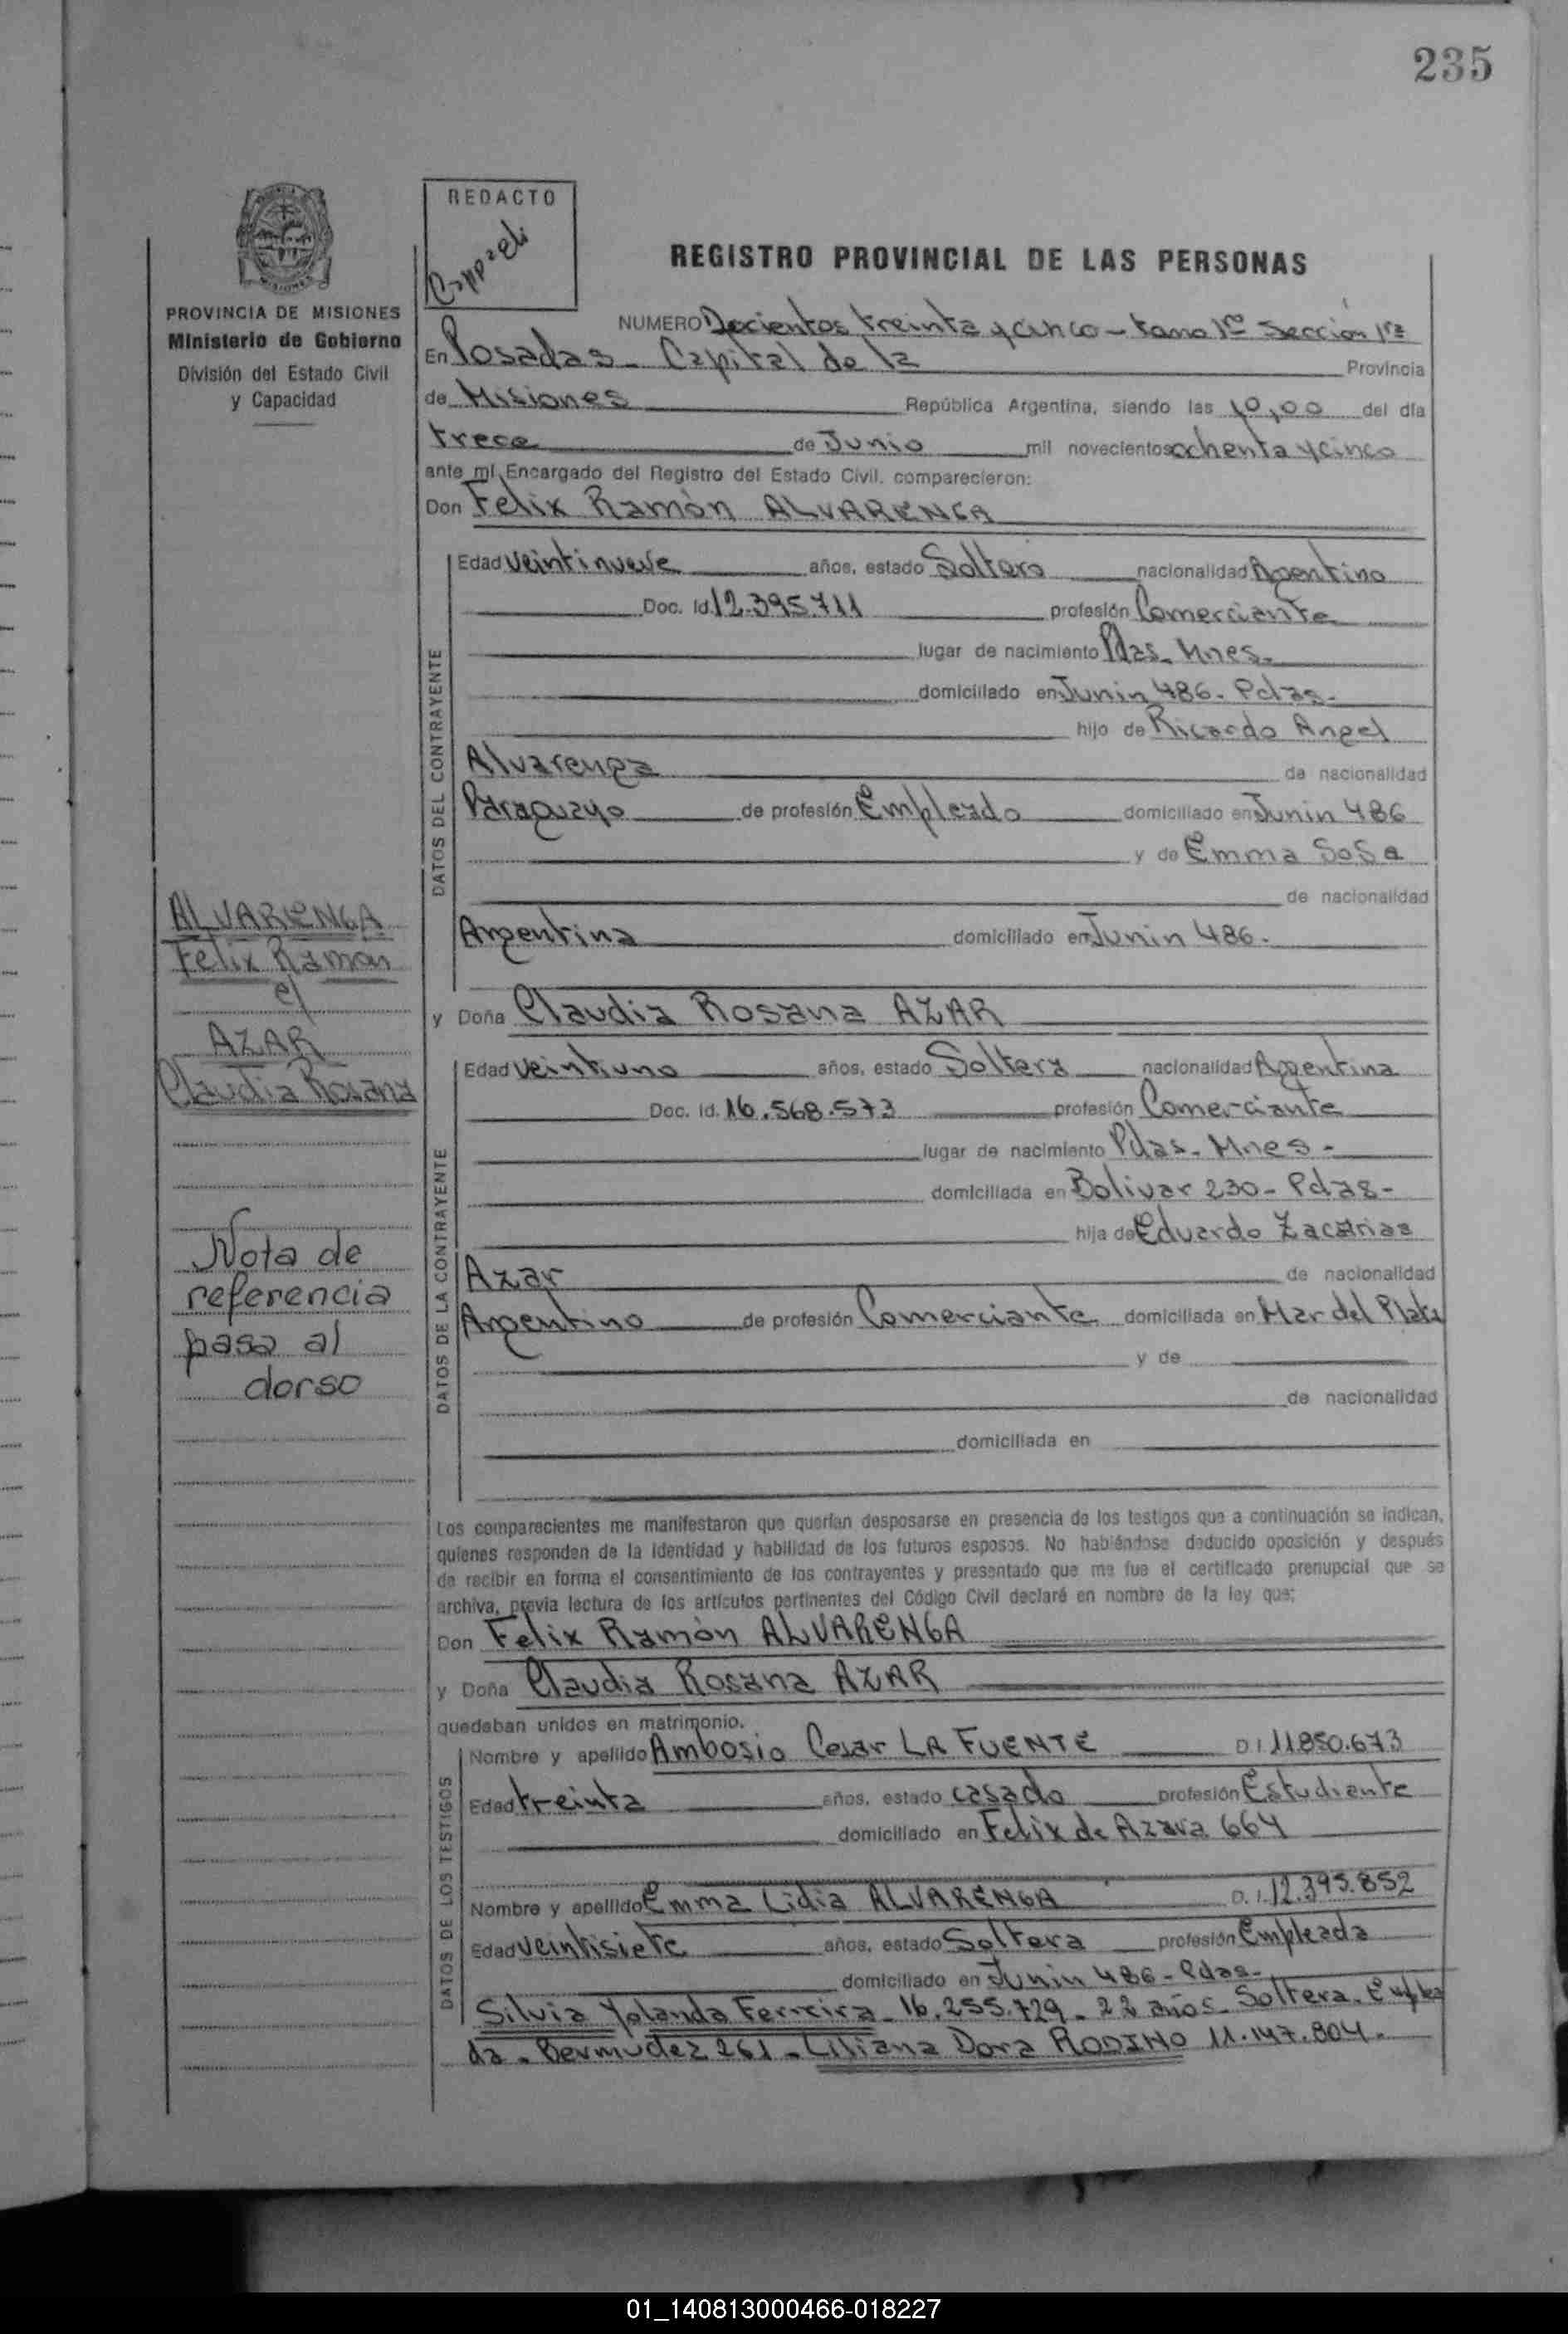 235
REDACTO
REGISTRO PROVINCIAL DE LAS PERSONAS
PROVINCIA DE MISIONES
Ministerio de Gobierno
División del Estado Civil
y Capacidad
NUMERO Docientos treinta y cinco - tomo 1º Sección 1ra
En Posadas - Capital de la Provincia
de Misiones República Argentina, siendo las 10,00 del día
trece de Junio mil novecientos ochenta y cinco
ante mí Encargado del Registro del Estado Civil. comparecieron:
Don Felix Ramòn ALVARENGA
DATOS DEL CONTRAYENTE
Edad veintinueve años, estado Soltero nacionalidad Argentino
Doc. Id. 12.395.711 profesión Comerciante
lugar de nacimiento Pdas. Mnes.
domiciliado en Junin 486. Pdas.
hijo de Ricardo Angel
Alvarenga de nacionalidad
Paraguayo de profesión Empleado domiciliado en Junin 486
y de Emma Sosa
de nacionalidad
Argentina domiciliado en Junin 486.
ALVARENGA
Felix Ramon
c/
AZAR
Claudia Rosana
Nota de
referencia
pasa al
dorso
y Doña Claudia Rosana AZAR
DATOS DE LA CONTRAYENTE
Edad veintiuno años, estado Soltera nacionalidad Argentina
Doc. Id. 16.568.573 profesión Comerciante
lugar de nacimiento Pdas. Mnes -
domiciliada en Bolivar 230 - Pdas -
hija de Eduardo Zacarias
Azar de nacionalidad
Argentino de profesión Comerciante domiciliada en Mar del Plata
y de
de nacionalidad
domiciliada en
Los comparecientes me manifestaron que querían desposarse en presencia de los testigos que a continuación se indican,
quienes responden de la identidad y habilidad de los futuros esposos. No habiéndose deducido oposición y después
de recibir en forma el consentimiento de los contrayentes y presentado que me fue el certificado prenupcial que se
archiva, previa lectura de los artículos pertinentes del Código Civil declaré en nombre de la ley que:
Don Felix Ramòn ALVARENGA
y Doña Claudia Rosana AZAR
quedaban unidos en matrimonio.
DATOS DE LOS TESTIGOS
Nombre y apellido Ambosio Cesar LA FUENTE D.I. 11.850.673
Edad treinta años, estado casado profesión Estudiante
domiciliado en Felix de Azara 664
Nombre y apellido Emma Lidia ALVARENGA D.I. 12.395.852
Edad veintisiete años, estado Soltera profesión Empleada
domiciliado en Junin 486 - Pdas -
Silvia Yolanda Ferreira - 16.255.729 - 22 años - Soltera. Emplea
da - Bermudez 261 - Liliana Dora RODINO 11.147.804.
01_140813000466-018227